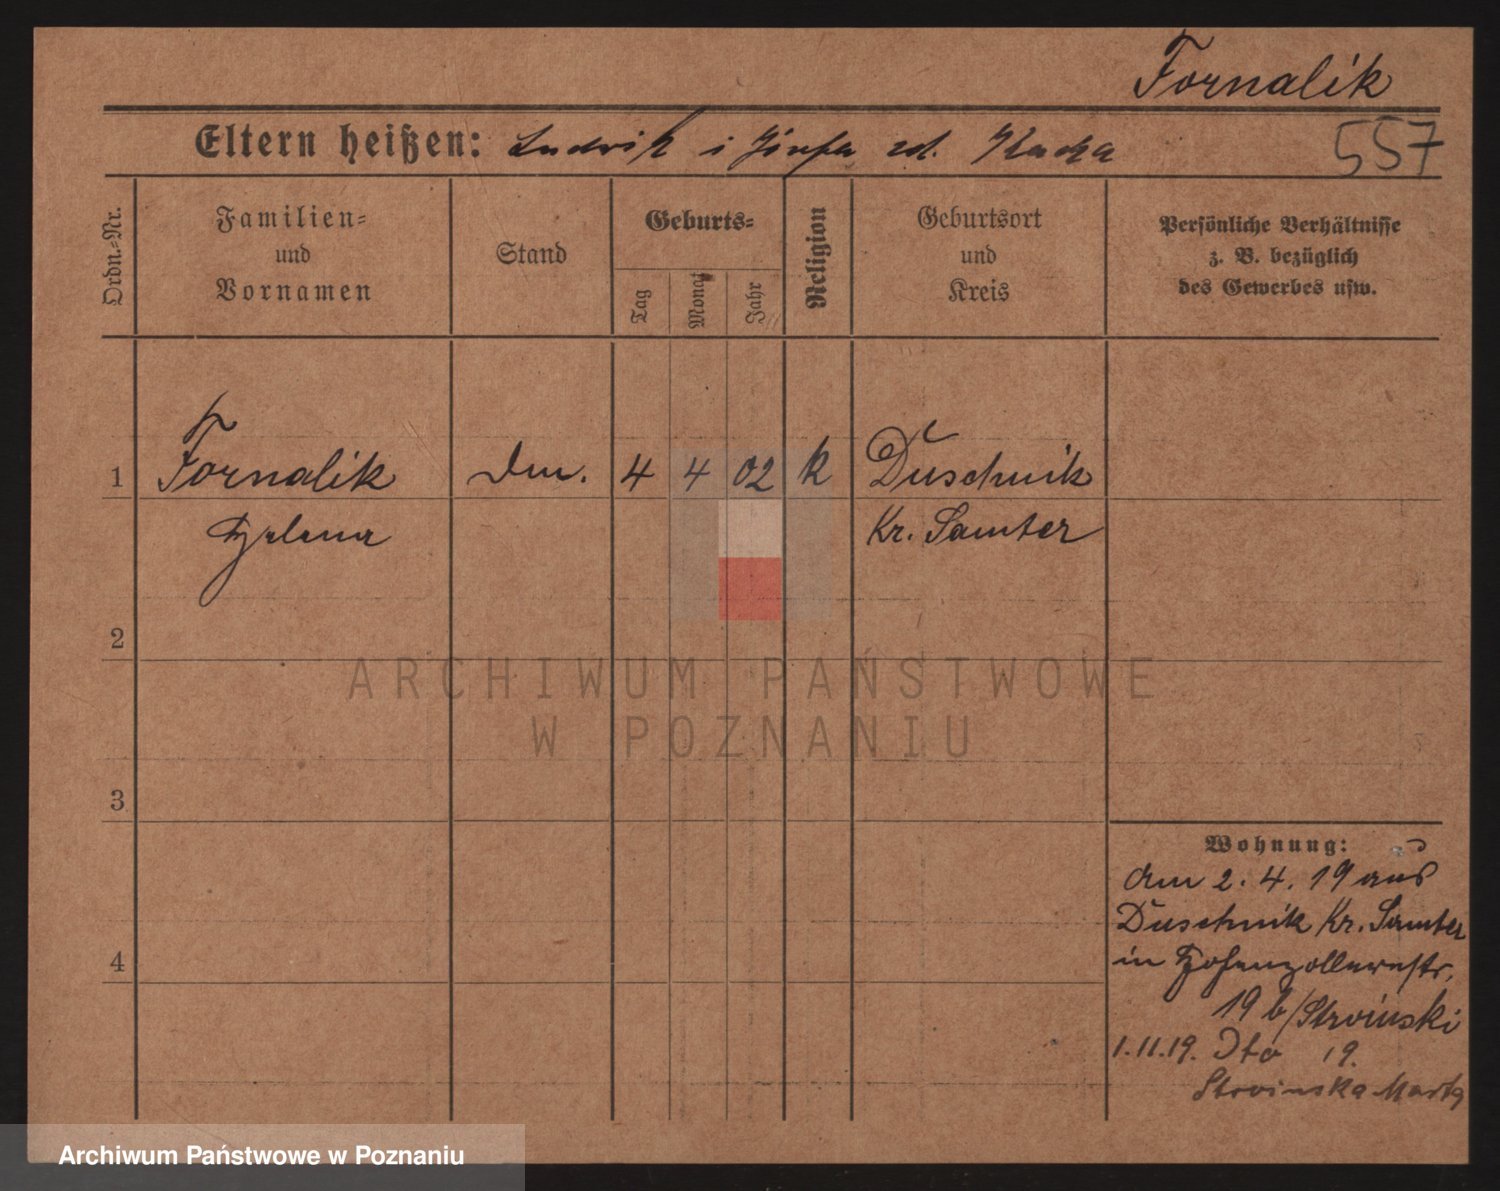 Fornalik
Eltern heißen: Ludwik i Józefa zd.
557
Ordn.=Nr.
Familien=
und
Vornamen
Stand
Geburts=
Tag
Monat
Jahr
Religion
Geburtsort
und
Kreis
Persönliche Verhältnisse
z. B. bezüglich
des Gewerbes usw.
1 Fornalik 4 4 02 k Duschnik
Helena Kr. Samter
2
ARCHIWUM PAŃSTWOWE
W POZNANIU
3
Wohnung:
am 2. 4. 19 aus
Duschnik Kr. Samter
4
in Hohenzollernstr.
19 b/Stroinski
1.11.19. Dto 19.
Stroinska Marta
Archiwum Państwowe w Poznaniu